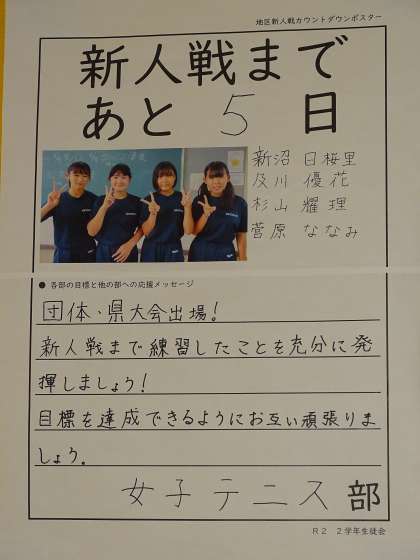 地区新人戦カウントダウンポスター
新人戦まで
あと 5 日
新沼 日桜里
及川 優花
杉山 耀理
菅原 ななみ
● 各部の目標と他の部への応援メッセージ
団体・県大会出場!
新人戦まで練習したことを充分に発
揮しましょう!
目標を達成できるようにお互い頑張りま
しょう。
女子テニス部
R2 2学年生徒会